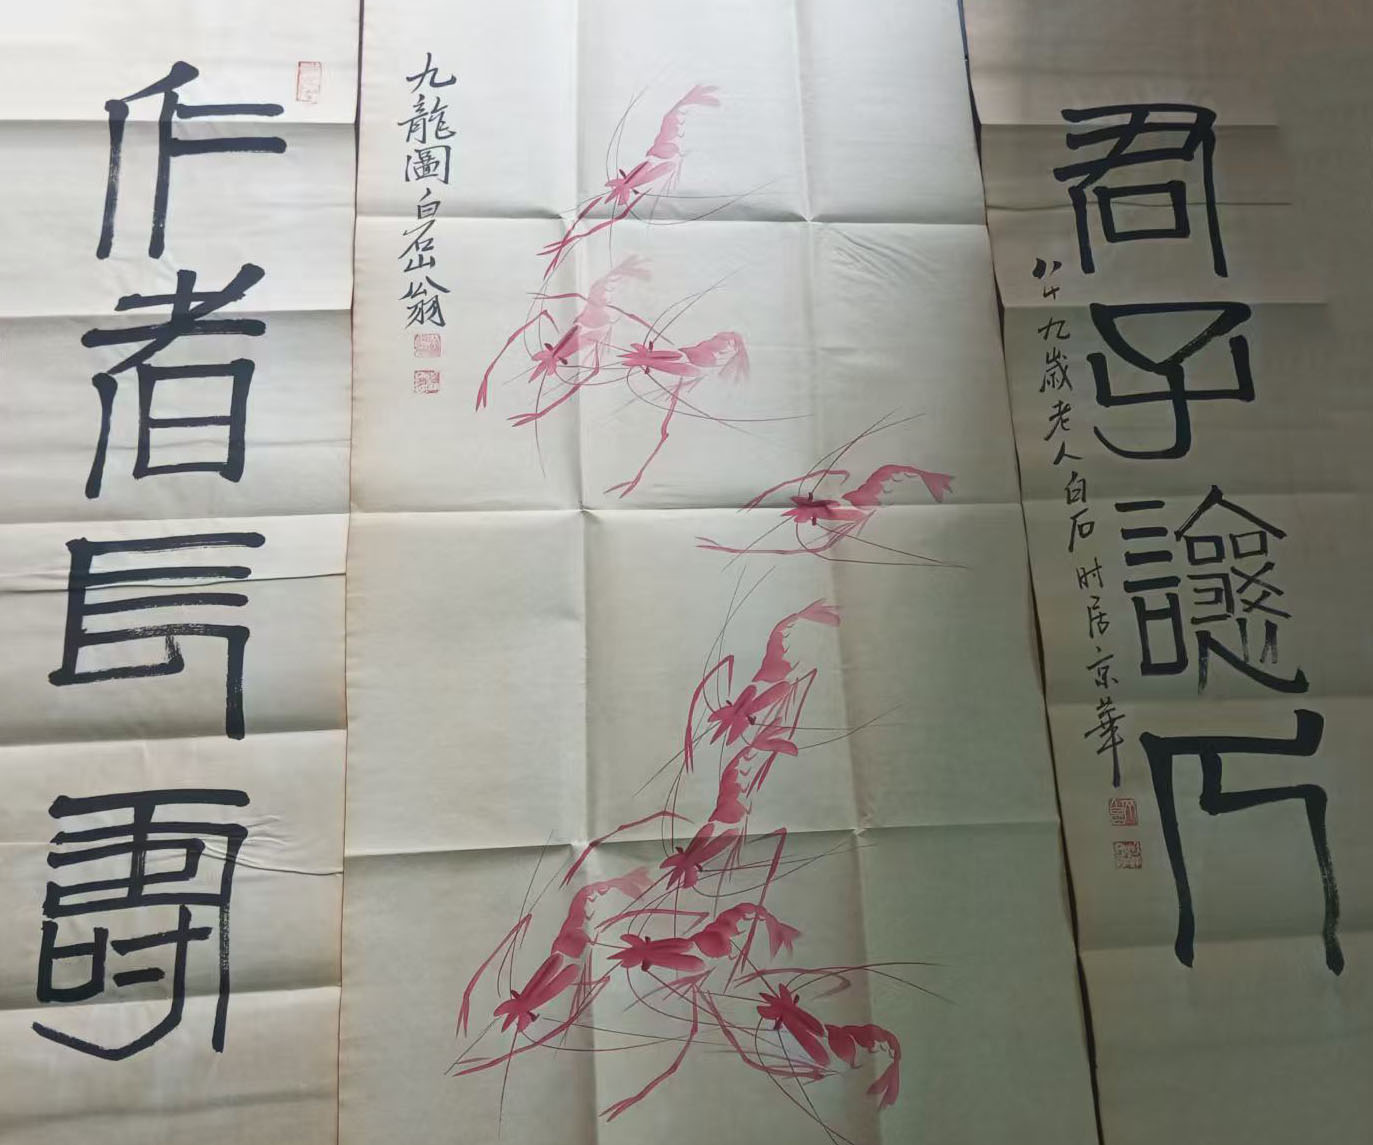 君子
八十九歲老人白石时居京華
九龍圖白石山翁
作者長壽